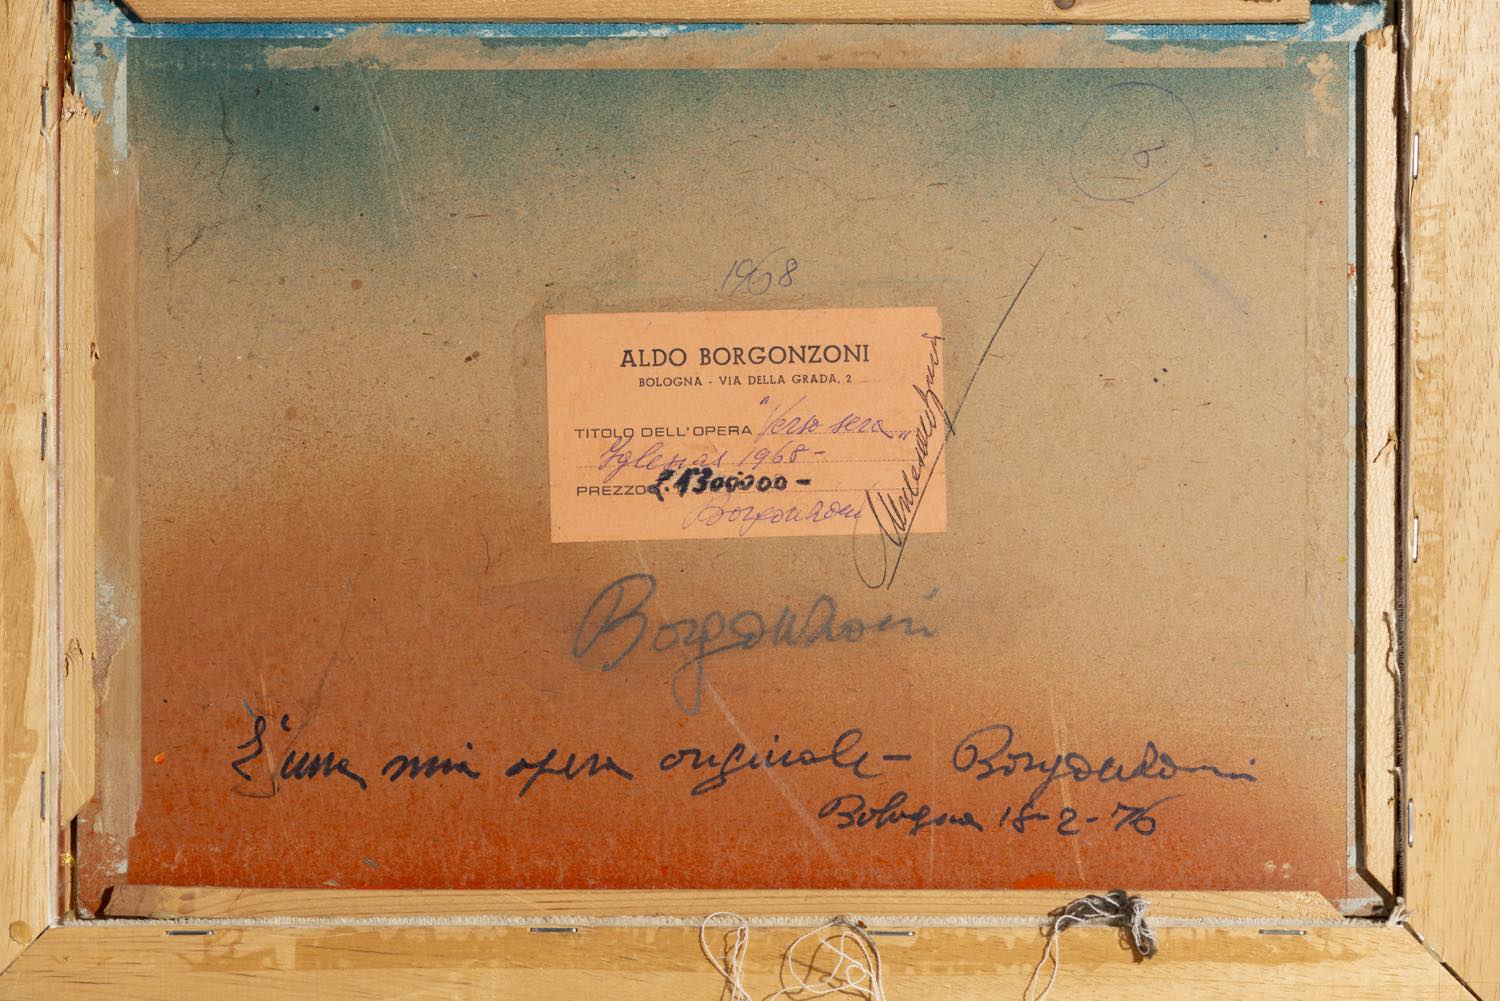 1968
ALDO BORGONZONI
BOLOGNA - VIA DELLA GRADA, 2
TITOLO DELL'OPERA "Verso sera"
Iglesias 1968-
PREZZO £.1300000-
Borgonzoni
Borgonzoni
E' una mia opera originale - Borgonzoni
Bologna 18-2-76